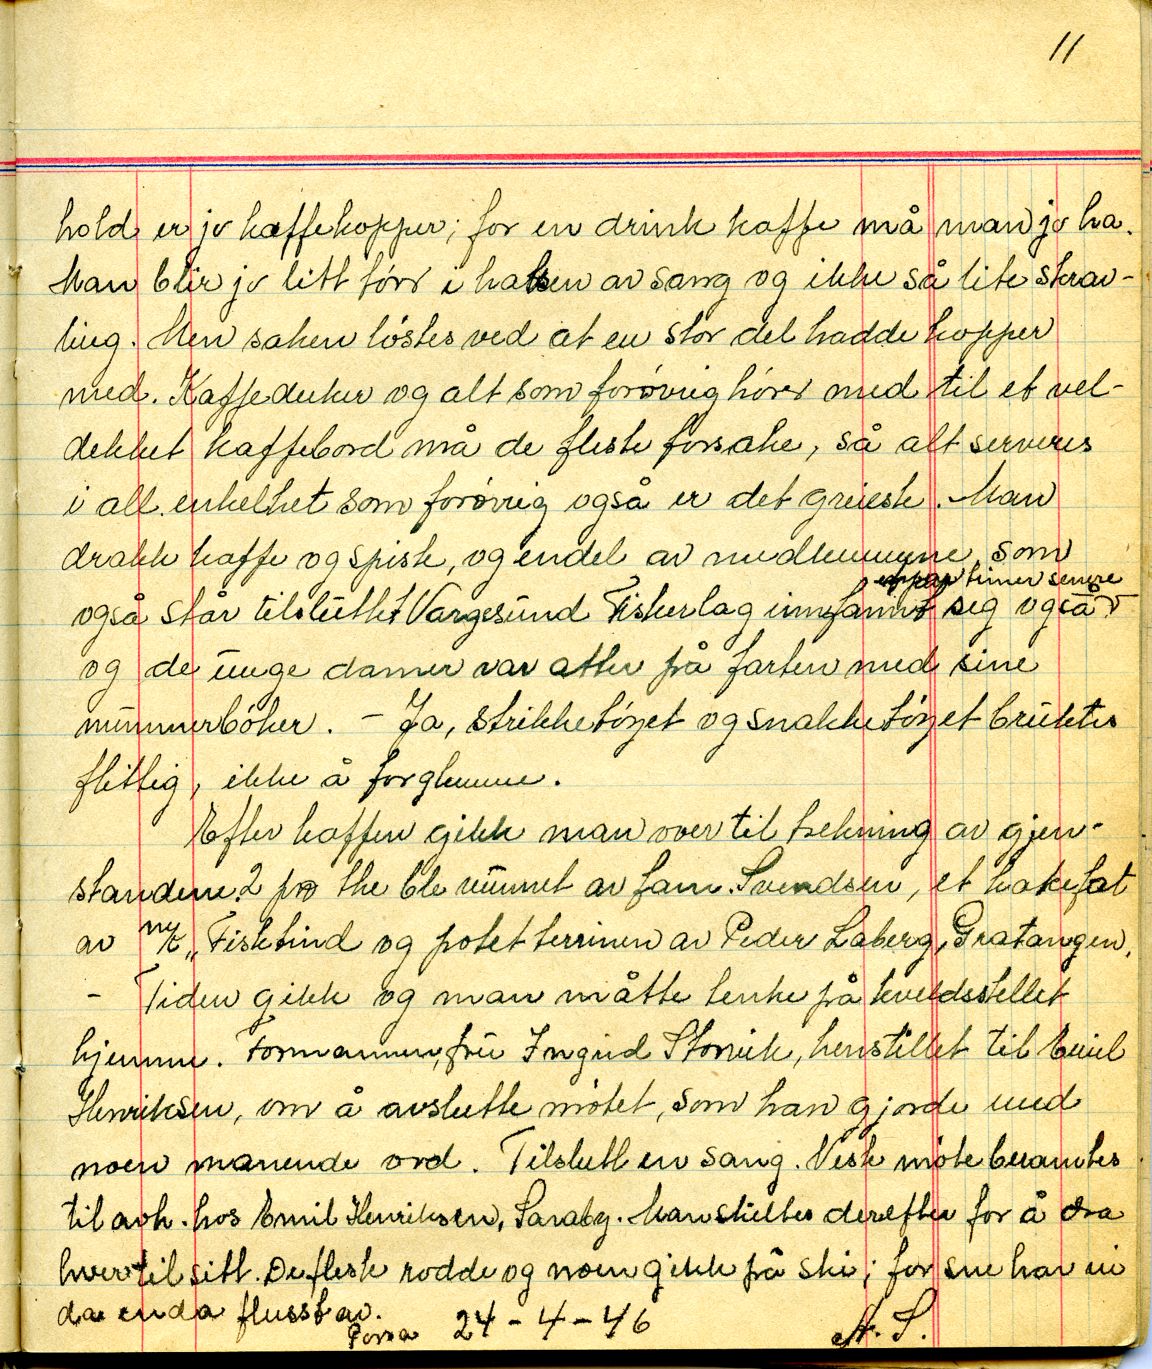 11
hold er jo kaffekopper; for en drink kaffe må man jo ha.
Man blir jo litt törr i halsen av sang og ikke så lite skrav-
ling. Men saken löstes ved at en stor del hadde kopper
med. Kaffeduker og alt som forøvrig hörer med til et vel-
dekket kaffebord må de fleste forsake, så alt serveres
i all enkelhet som forøvrig også er det greieste. Man
drakk kaffe og spiste, og endel av medlemmene, som
et par timer senere
også står tilsluttet Vargesund Fiskerlag innfant seg også
og de unge damer var atter på farten med sine
nummerböker. - Ja, strikketöyet og snakketöyet bruktes
flittig, ikke å forglemme.
Efter kaffen gikk man over til trekning av gjen-
standene. 2 på the ble vunnet av fam. Svendsen, et kakefat
av m/k „Fisketind og potetterrinen av Peder Laberg, Gratangen.
- Tiden gikk og man måtte tenke på kveldsstellet
hjemme. Formannen, fru Ingrid Storvik, henstillet til Emil
Henriksen, om å avslutte mötet, som han gjorde med
noen manende ord. Tilslutt en sang. Neste möte berammtes
til avh. hos Emil Henriksen, Saraby. Man skiltes derefter for å dra
hver til sitt. De fleste rodde og noen gikk på ski; for sne har vi
da enda flusst av.
Porsa 24-4-46 A. S.